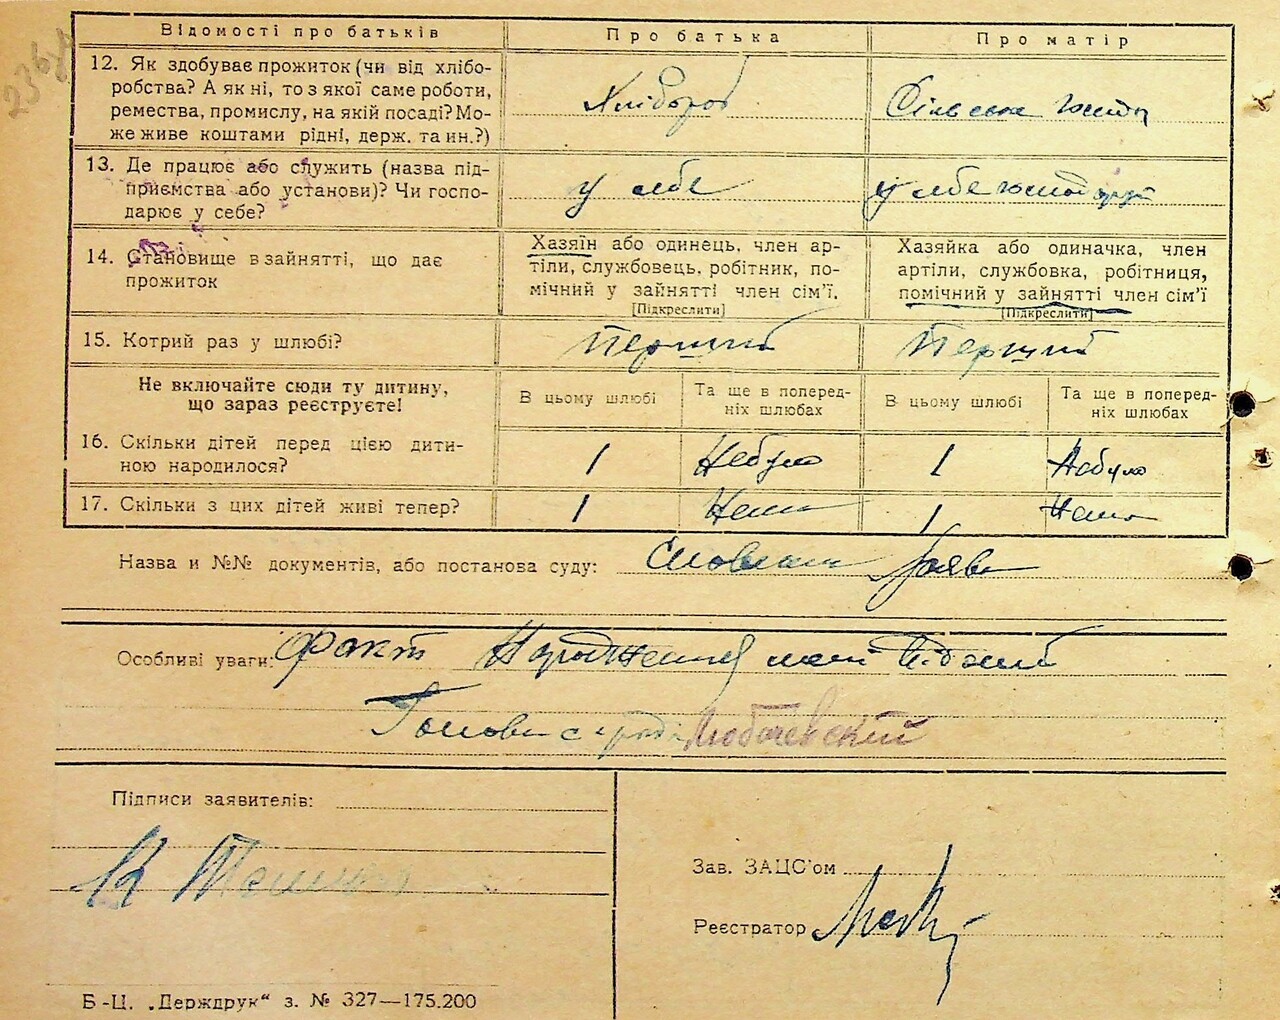 236
Відомості про батьків
Про батька
Про матір
12. Як здобуває прожиток (чи від хлібо-
робства? А як ні, то з якої саме роботи,
ремества, промислу, на якій посаді? Мо-
же живе коштами рідні, держ. та ин.?)
Хлібороб
Сільське господ
13. Де працює або служить (назва під-
приємства або установи)? Чи госпо-
дарює у себе?
у себе
у себе господарює
14. Становище в зайнятті, що дає
прожиток
Хазяїн або одинець, член ар-
тіли, службовець, робітник, по-
мічний у зайнятті член сім'ї.
[Підкреслити]
Хазяйка або одиначка, член
артіли, службовка, робітниця,
помічний у зайнятті член сім'ї
[Підкреслити]
15. Котрий раз у шлюбі?
Перший
Перший
Не включайте сюди ту дитину,
що зараз реєструєте!
В цьому шлюбі
Та ще в поперед-
ніх шлюбах
В цьому шлюбі
Та ще в поперед-
ніх шлюбах
16. Скільки дітей перед цією дити-
ною народилося?
1
Небуло
1
Небуло
17. Скільки з цих дітей живі тепер?
1
Нема
1
Нема
Назва и №№ документів, або постанова суду:
Словесна Заява
Особливі уваги:
Факт Народження мені відомий
Голова с ради Любачевский
Підписи заявителів:
Зав. ЗАЦС'ом
Реєстратор
Б-Ц. „Держдрук“ з. № 327—175.200